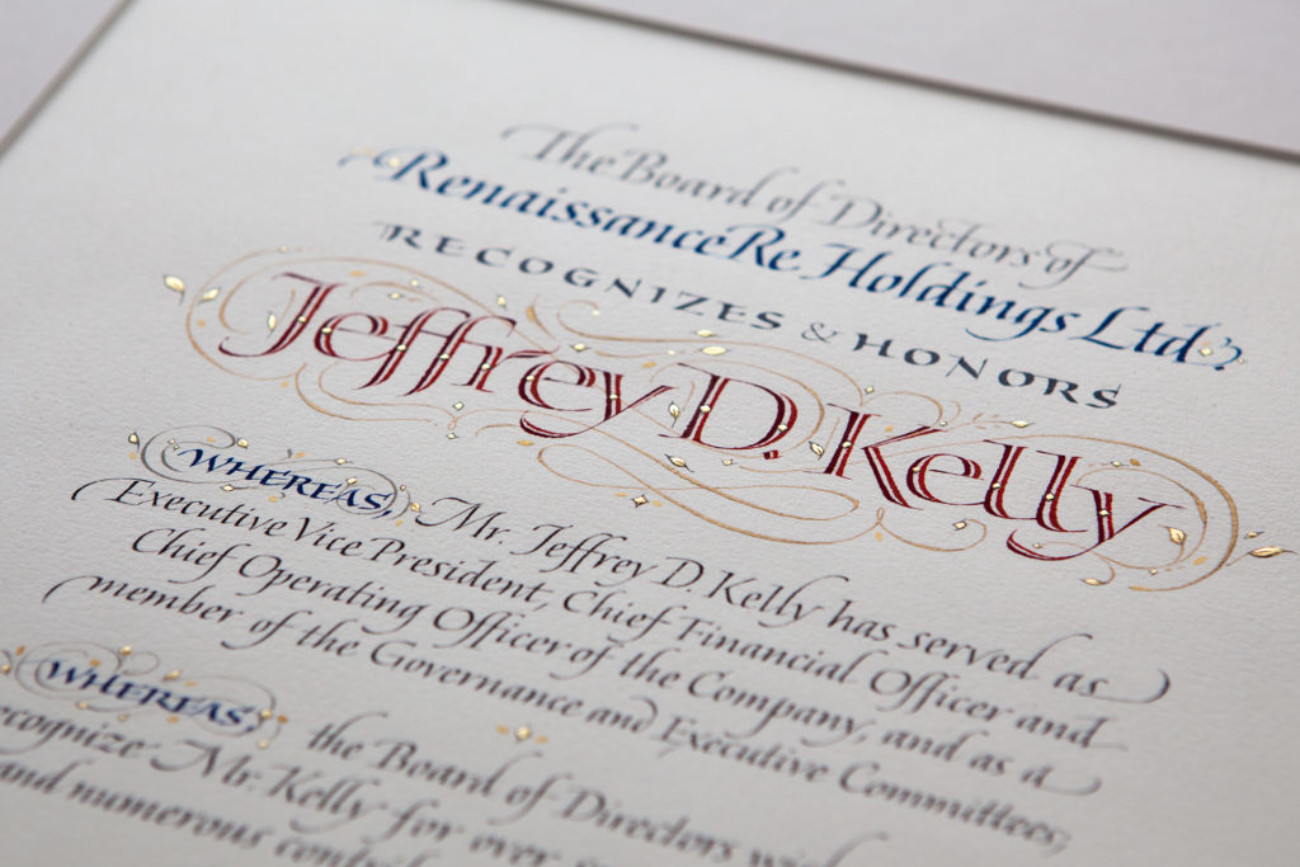 The Board of Directors of
RenaissanceRe Holdings Ltd.
RECOGNIZES & HONORS
Jeffrey D. Kelly
WHEREAS, Mr. Jeffrey D. Kelly has served as
Executive Vice President, Chief Financial Officer and
Chief Operating Officer of the Company, and as a
member of the Governance and Executive Committees;
WHEREAS, the Board of Directors
Mr. Kelly for over
and numerous